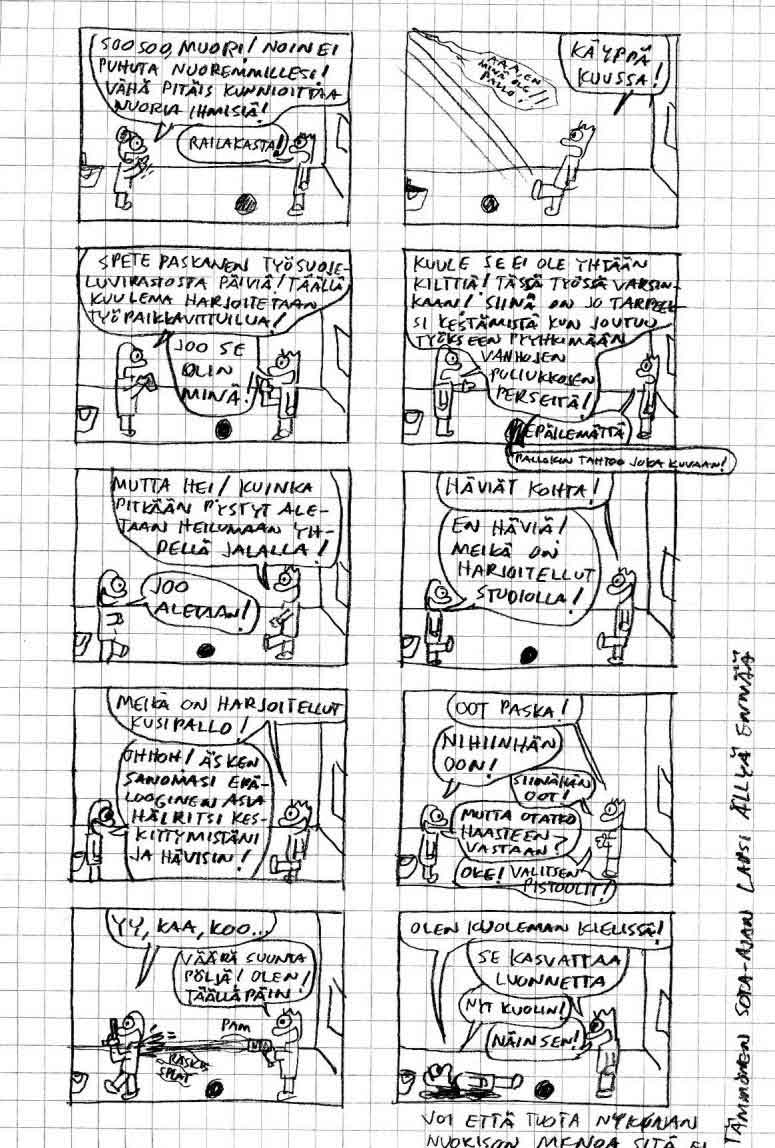 SOO SOO, MUORI! NOIN EI
PUHUTA NUOREMMILLESI!
VÄHÄ PITÄIS KUNNIOITTAA
NUORIA IHMISIÄ!
RAILAKASTA!
AAA, EN
MINÄ OLE
PALLO!!
KÄYPPÄ
KUUSSA!
SPETE PASKANEN TYÖSUOJE-
LUVIRASTOSTA PÄIVIÄ! TÄÄLLÄ
KUULEMA HARJOITETAAN
TYÖPAIKKAVITTUILUA!
JOO SE
OLIN
MINÄ!
KUULE SE EI OLE YHTÄÄN
KILTTIÄ! TÄSSÄ TYÖSSÄ VARSIN-
KAAN! SIINÄ ON JO TARPEEK-
SI KESTÄMISTÄ KUN JOUTUU
TYÖKSEEN PYYHKIMÄÄN
VANHOJEN
PULIUKKOJEN
PERSEITÄ!
EPÄILEMÄTTÄ
PALLOKIN TAHTOO JOKA KUVAAN!
MUTTA HEI! KUINKA
PITKÄÄN PYSTYT ALE-
TAAN HEILUMAAN YH-
DELLÄ JALALLA!
JOO
ALETAAN!
HÄVIÄT KOHTA!
EN HÄVIÄ!
MEIKÄ ON
HARJOITELLUT
STUDIOLLA!
MEIKÄ ON HARJOITELLUT
KUSIPALLO!
OHHOH! ÄSKEN
SANOMASI EPÄ-
LOOGINEN ASIA
HÄIRITSI KES-
KITTYMISTÄNI
JA HÄVISIN!
OOT PASKA!
NIHIINHÄN
OON!
SIINÄHÄN
OOT!
MUTTA OTATKO
HAASTEEN
VASTAAN?
OKE! VALITSEN
PISTOOLIT!
YY, KAA, KOO...
VÄÄRÄ SUUNTA
PÖLJÄ! OLEN
TÄÄLLÄ PÄIN!
PAM
RÄSKS
SPLAT
OLEN KUOLEMAN KIELISSÄ!
SE KASVATTAA
LUONNETTA
NYT KUOLIN!
NÄIN SEN!
VOI ETTÄ TUOTA NYKYAJAN
NUORISON MENOA SITÄ EI
TÄMMÖNEN SOTA-AJAN LAPSI ÄLLYÄ ENNÄÄ